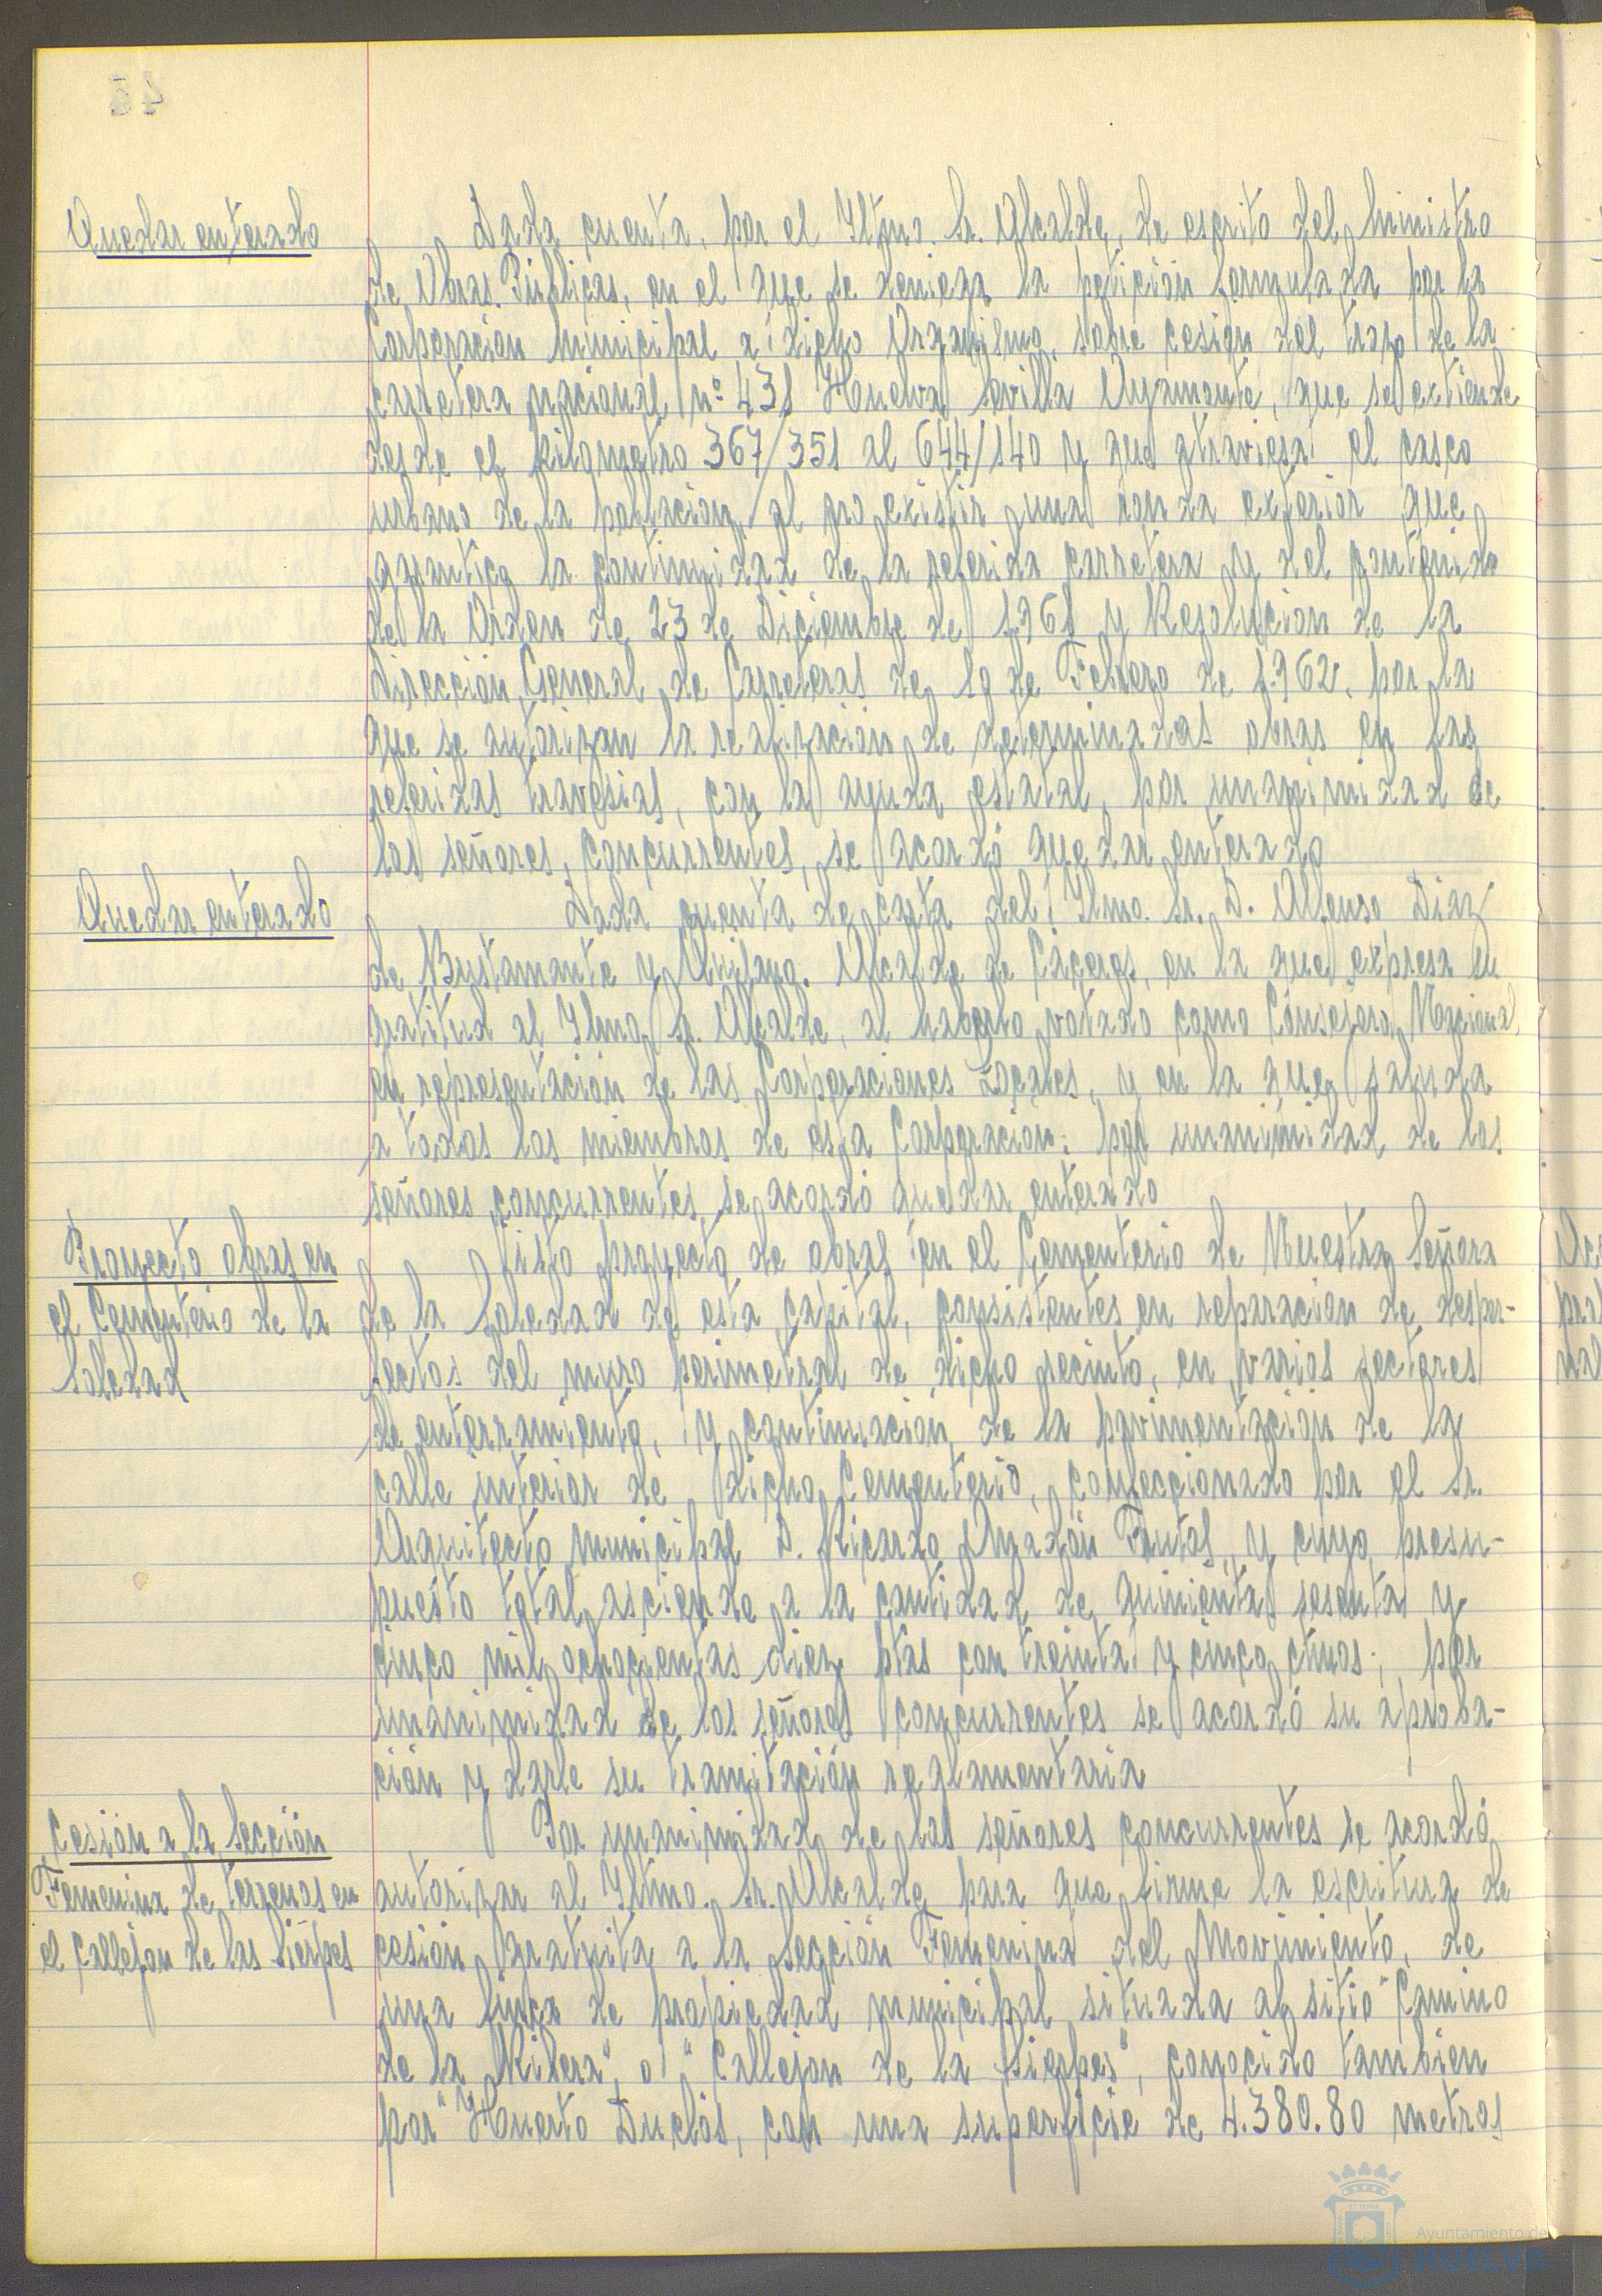 Quedar enterado
Dada cuenta, por el Iltmo. Sr. Alcalde, de escrito del Ministro
de Obras Públicas, en el que se deniega la petición formulada por la
Corporación Municipal a dicho Organismo, sobre cesión del trazo de la
carretera nacional nº 431 Huelva Sevilla Ayamonte, que se extiende
desde el kilometro 367/351 al 644/140 y que atraviesa el casco
urbano de la poblacion, al no existir una ronda exterior que
garantice la continuidad de la referida carretera y del contenido
de la Orden de 23 de Diciembre de 1.961 y Resolucion de la
Dirección General de Carreteras de 19 de Febrero de 1.962, por la
que se autorizan la realización de determinadas obras en las
referidas travesias, con la ayuda estatal, por unanimidad de
los señores, concurrentes, se acordó quedar enterado
Quedar enterado
Dada cuenta de carta del Ilmo. Sr. D. Alfonso Diaz
de Bustamante y Quijano. Alcalde de Cáceres, en la que expresa su
gratitud al Ilmo. Sr. Alcalde, al haberlo votado como Consejero Nacional
en representación de las Corporaciones Locales, y en la que saluda
a todos los miembros de esta Corporación; por unanimidad de los
señores concurrentes se acordó quedar enterado
Proyecto obras en
el Cementerio de la
Soledad
Visto proyecto de obras en el Cementerio de Nuestra Señora
de la Soledad de esta capital, consistentes en reparacion de desper-
fectos del muro perimetral de dicho recinto, en varios sectores
de enterramiento, y continuacion de la pavimentación de la
calle interior de dicho Cementerio, confeccionado por el Sr.
Arquitecto municipal D. Ricardo Anadón Frutos, y cuyo presu-
puesto total asciende a la cantidad de quinientas sesenta y
cinco mil ochocientas diez ptas con treinta y cinco ctmos; por
unanimidad de los señores concurrentes se acordó su aproba-
ción y darle su tramitación reglamentaria
Cesión a la Sección
Femenina de terrenos en
el Callejon de las Sierpes
Por unanimidad de los señores concurrentes se acordó
autorizar al Iltmo. Sr. Alcalde para que firme la escritura de
cesión gratuita a la Sección Femenina del Movimiento, de
una finca de propiedad municipal situada al sitio "Camino
de la Ribera" o "Callejon de la Sierpes", conocido tambien
por "Huerto Duclós, con una superficie de 4.380.80 metros
Ayuntamiento de
HUELVA